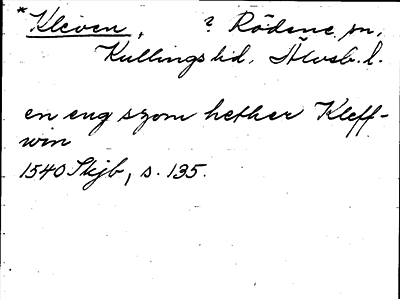 *Kleven, ? Rödene sn,
Kullings hd. Älvsb. l.
en eng szom hether Kleff-
win
1540 Skjb, s. 135.